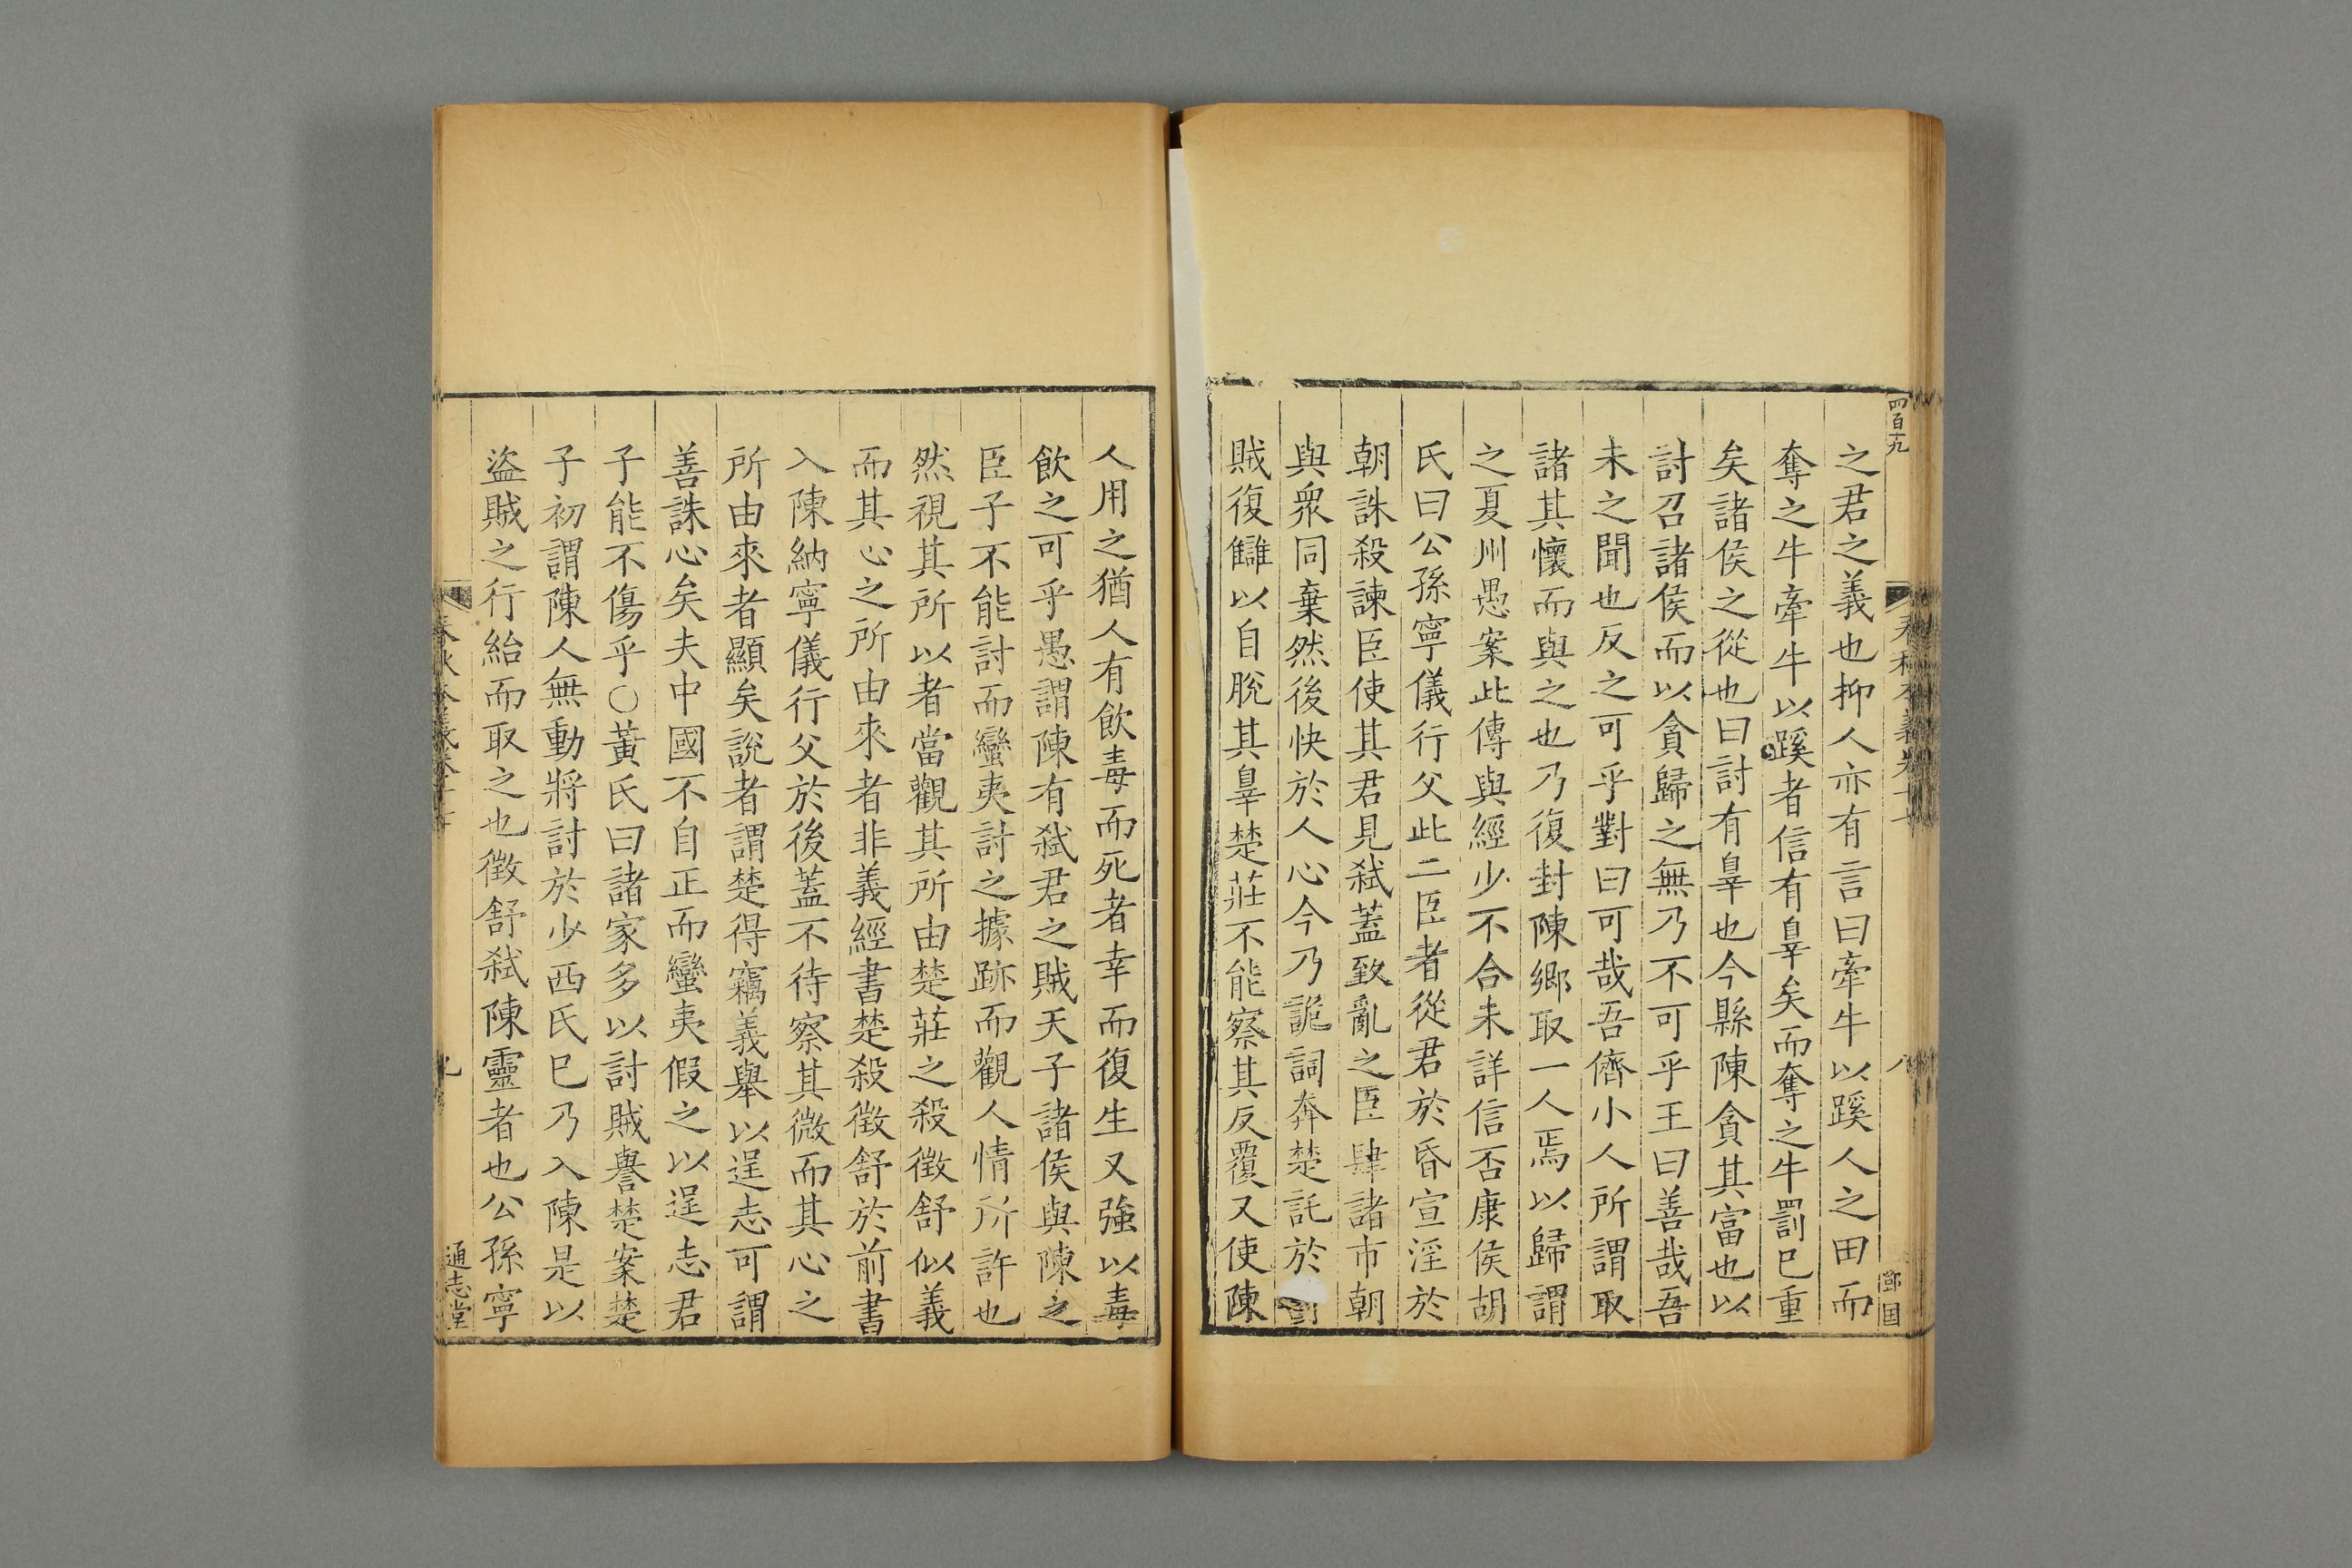 四百十九
之君之義也抑人亦有言曰牽牛以蹊人之田而
奪之牛牽牛以蹊者信有辠矣而奪之牛罰已重
矣諸侯之從也曰討有辠也今縣陳貪其富也以
討召諸侯而以貪歸之無乃不可乎王曰善哉吾
未之聞也反之可乎對曰可哉吾儕小人所謂取
諸其懷而與之也乃復封陳鄉取一人焉以歸謂
之夏州愚案此傳與經少不合未詳信否康侯胡
氏曰公孫寧儀行父此二臣者從君於昏宣淫於
朝誅殺諫臣使其君見弒蓋致亂之臣肆諸市朝
與衆同棄然後快於人心今乃詭詞奔楚託於
賊復讎以自脫其辠楚莊不能察其反覆又使陳
八
人用之猶人有飲毒而死者幸而復生又強以毒
飲之可乎愚謂陳有弒君之賊天子諸侯與陳之
臣子不能討而蠻夷討之據跡而觀人情所許也
然視其所以者當觀其所由楚莊之殺徵舒似義
而其心之所由來者非義經書楚殺徵舒於前書
入陳納寧儀行父於後蓋不待察其微而其心之
所由來者顯矣說者謂楚得竊義舉以逞志可謂
善誅心矣夫中國不自正而蠻夷假之以逞志君
子能不傷乎○黃氏曰諸家多以討賊譽楚案楚
子初謂陳人無動將討於少西氏已乃入陳是以
盜賊之行紿而取之也徵舒弒陳靈者也公孫寧
九
通志堂